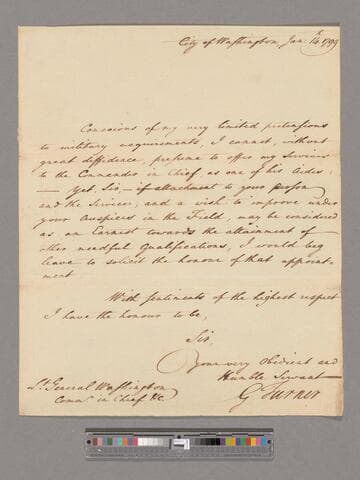 City of Washington, Jan. 14th 1799
Conscious of my very limited pretensions
to military requirements, I cannot, without
great diffidence, presume to offer my Services
to the Commander in Chief, as one of his Aides:
— yet, Sir, — if attachment to your person
and the Service, and a wish to improve under
your Auspices in the Field, may be considered
as an Earnest towards the attainment of
other needful Qualifications, I would beg
leave to solicit the honour of that appoint-
ment
With Sentiments of the highest respect
I have the honour to be,
Sir,
Your very Obedient and
Humble Servant
G Turner
Lt. General Washington
Comr. in Chief &c